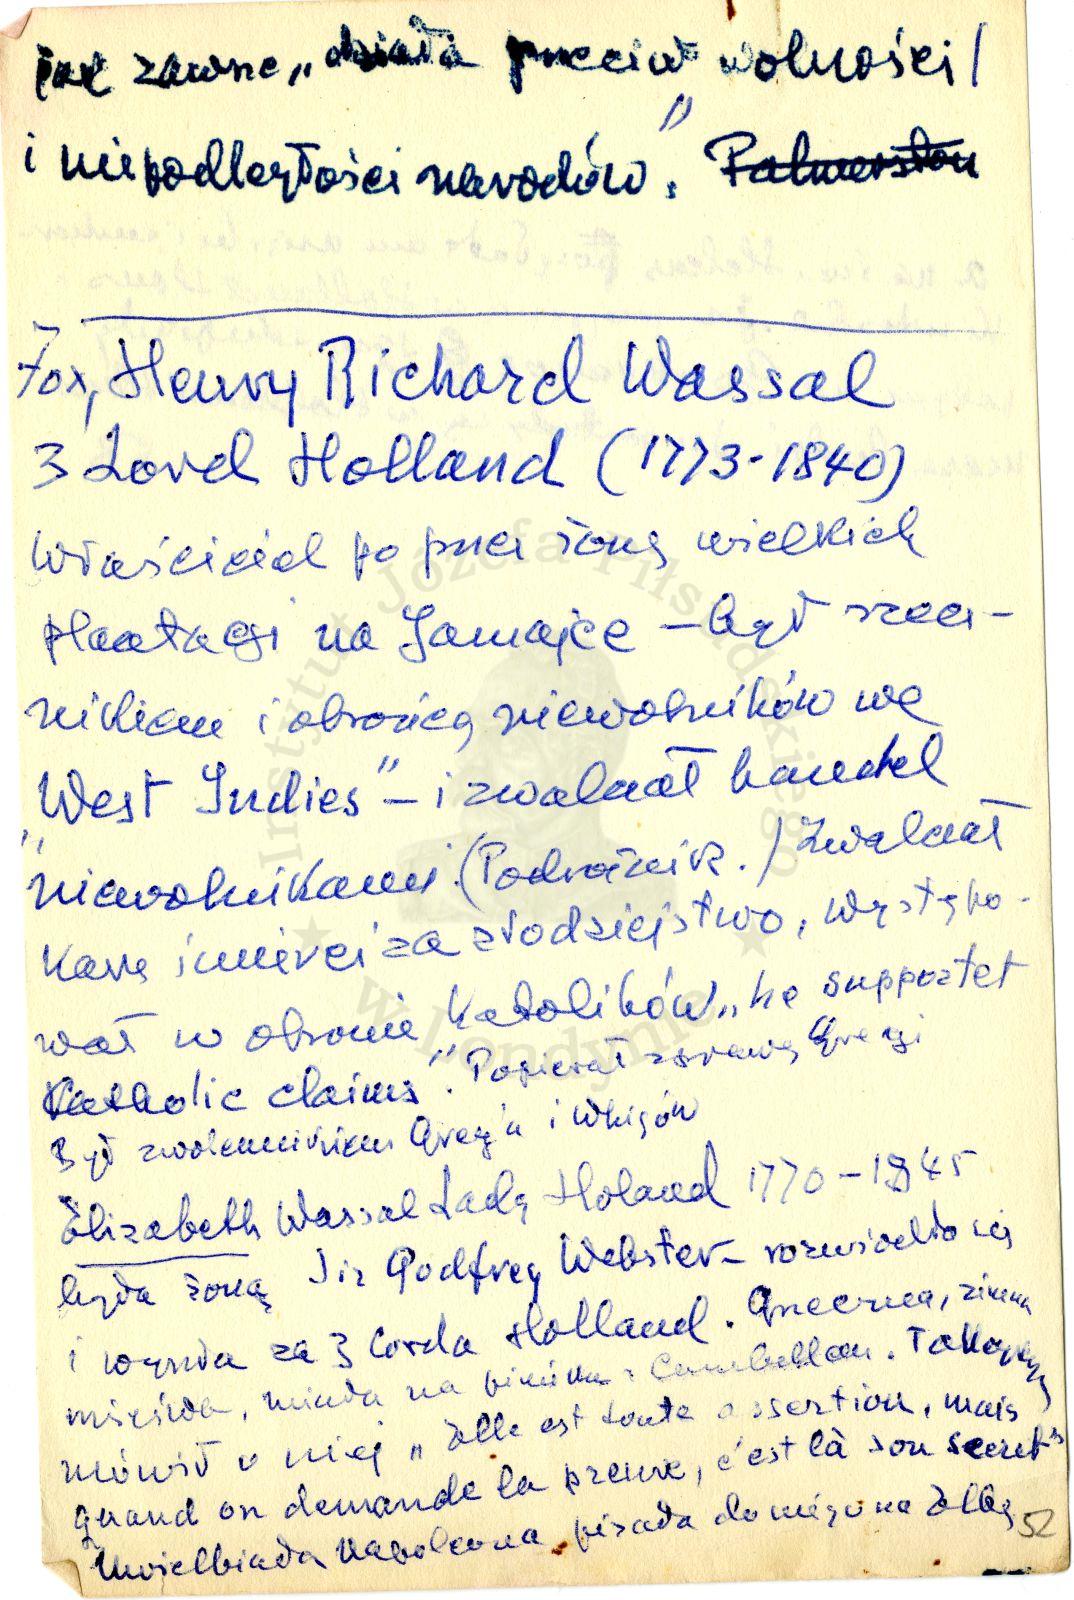 jak zawsze „działa przeciw wolności
i niepodległości narodów." Palmerston
Fox, Henry Richard Wassal
3 Lord Holland (1773-1840)
Właściciel po przez żonę wielkich
plantacji na Jamajce – był rzecz-
nikiem i obrońcą niewolników we
„West Indies" – i zwalczał handel
niewolnikami. (Podróżnik.) Zwalczał
karę śmierci za złodziejstwo, występo-
wał w obronie Katolików „he supportet
Catholic claims". Popierał sprawę Grecji
Był zwolennikiem Grey'a i Whigów
Elizabeth Wassal Lady Holand 1770-1845
była żoną Sir Godfrey Webster – rozwiodła się
i wyszła za 3 Lorda Holland. Grzeczna, zimna
mściwa, miała na pieńku z Cambellam. Talleyrand
mówił o niej „Elle est toute assertion, mais
quand on demande la preuve, c'est là son secret"
Uwielbiała Napoleona pisała do niego na Elbę
52
Instytut Józefa Piłsudskiego
w Londynie